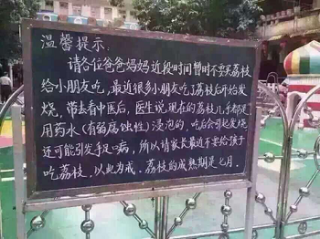 温馨提示:
请各位爸爸妈妈近段时间暂时不要买荔枝
给小朋友吃,最近很多小朋友吃了荔枝后开始发
烧,带去看中医后,医生说,现在的荔枝几乎都是
用药水(有弱腐蚀性)浸泡的,吃后会引起发烧
还可能引发手足口病,所以请家长最近不要给孩子
吃荔枝,以此为戒,荔枝的成熟期是七月。